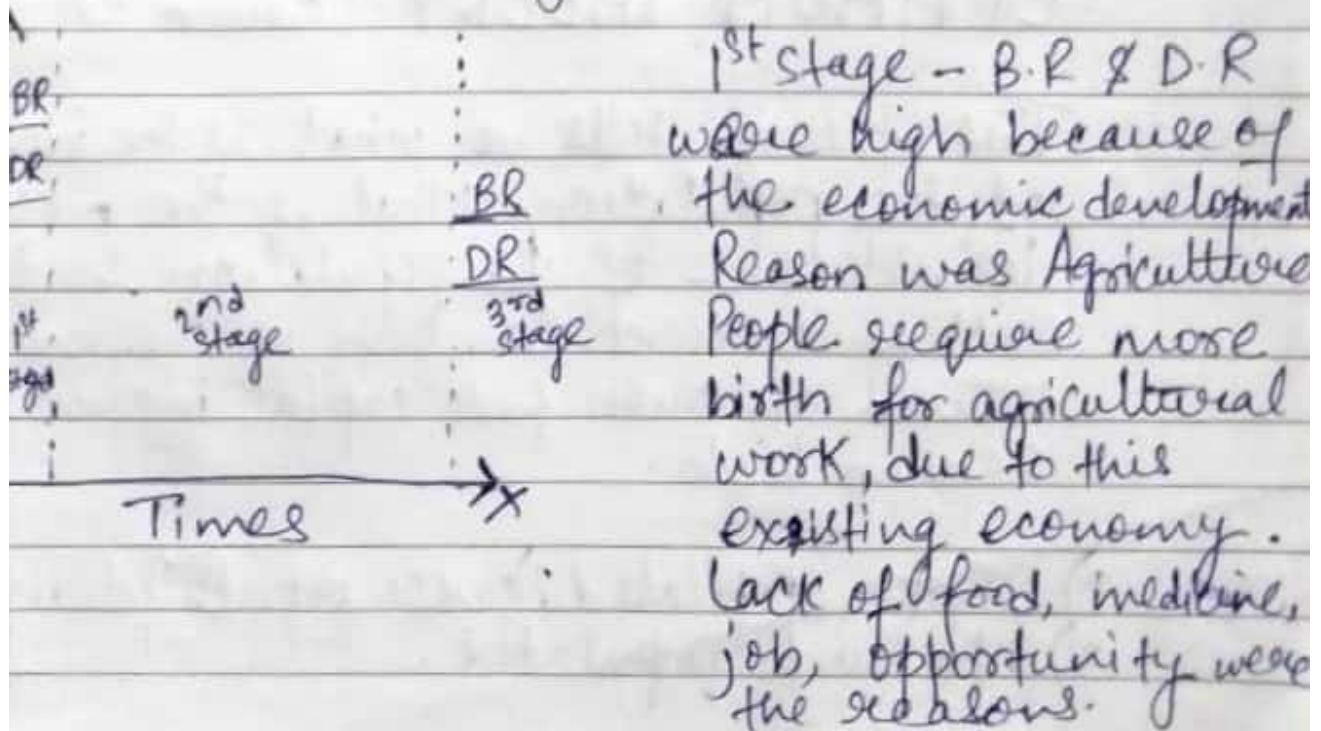 BR
DR
BR
DR
1st
2nd
stage
3rd
stage
Times
X
1st stage - B.R & D.R
were high because of
the economic development
Reason was Agriculture
People require more
birth for agricultural
work, due to this
existing economy.
Lack of food, medicine,
job, opportunity were
the reasons.